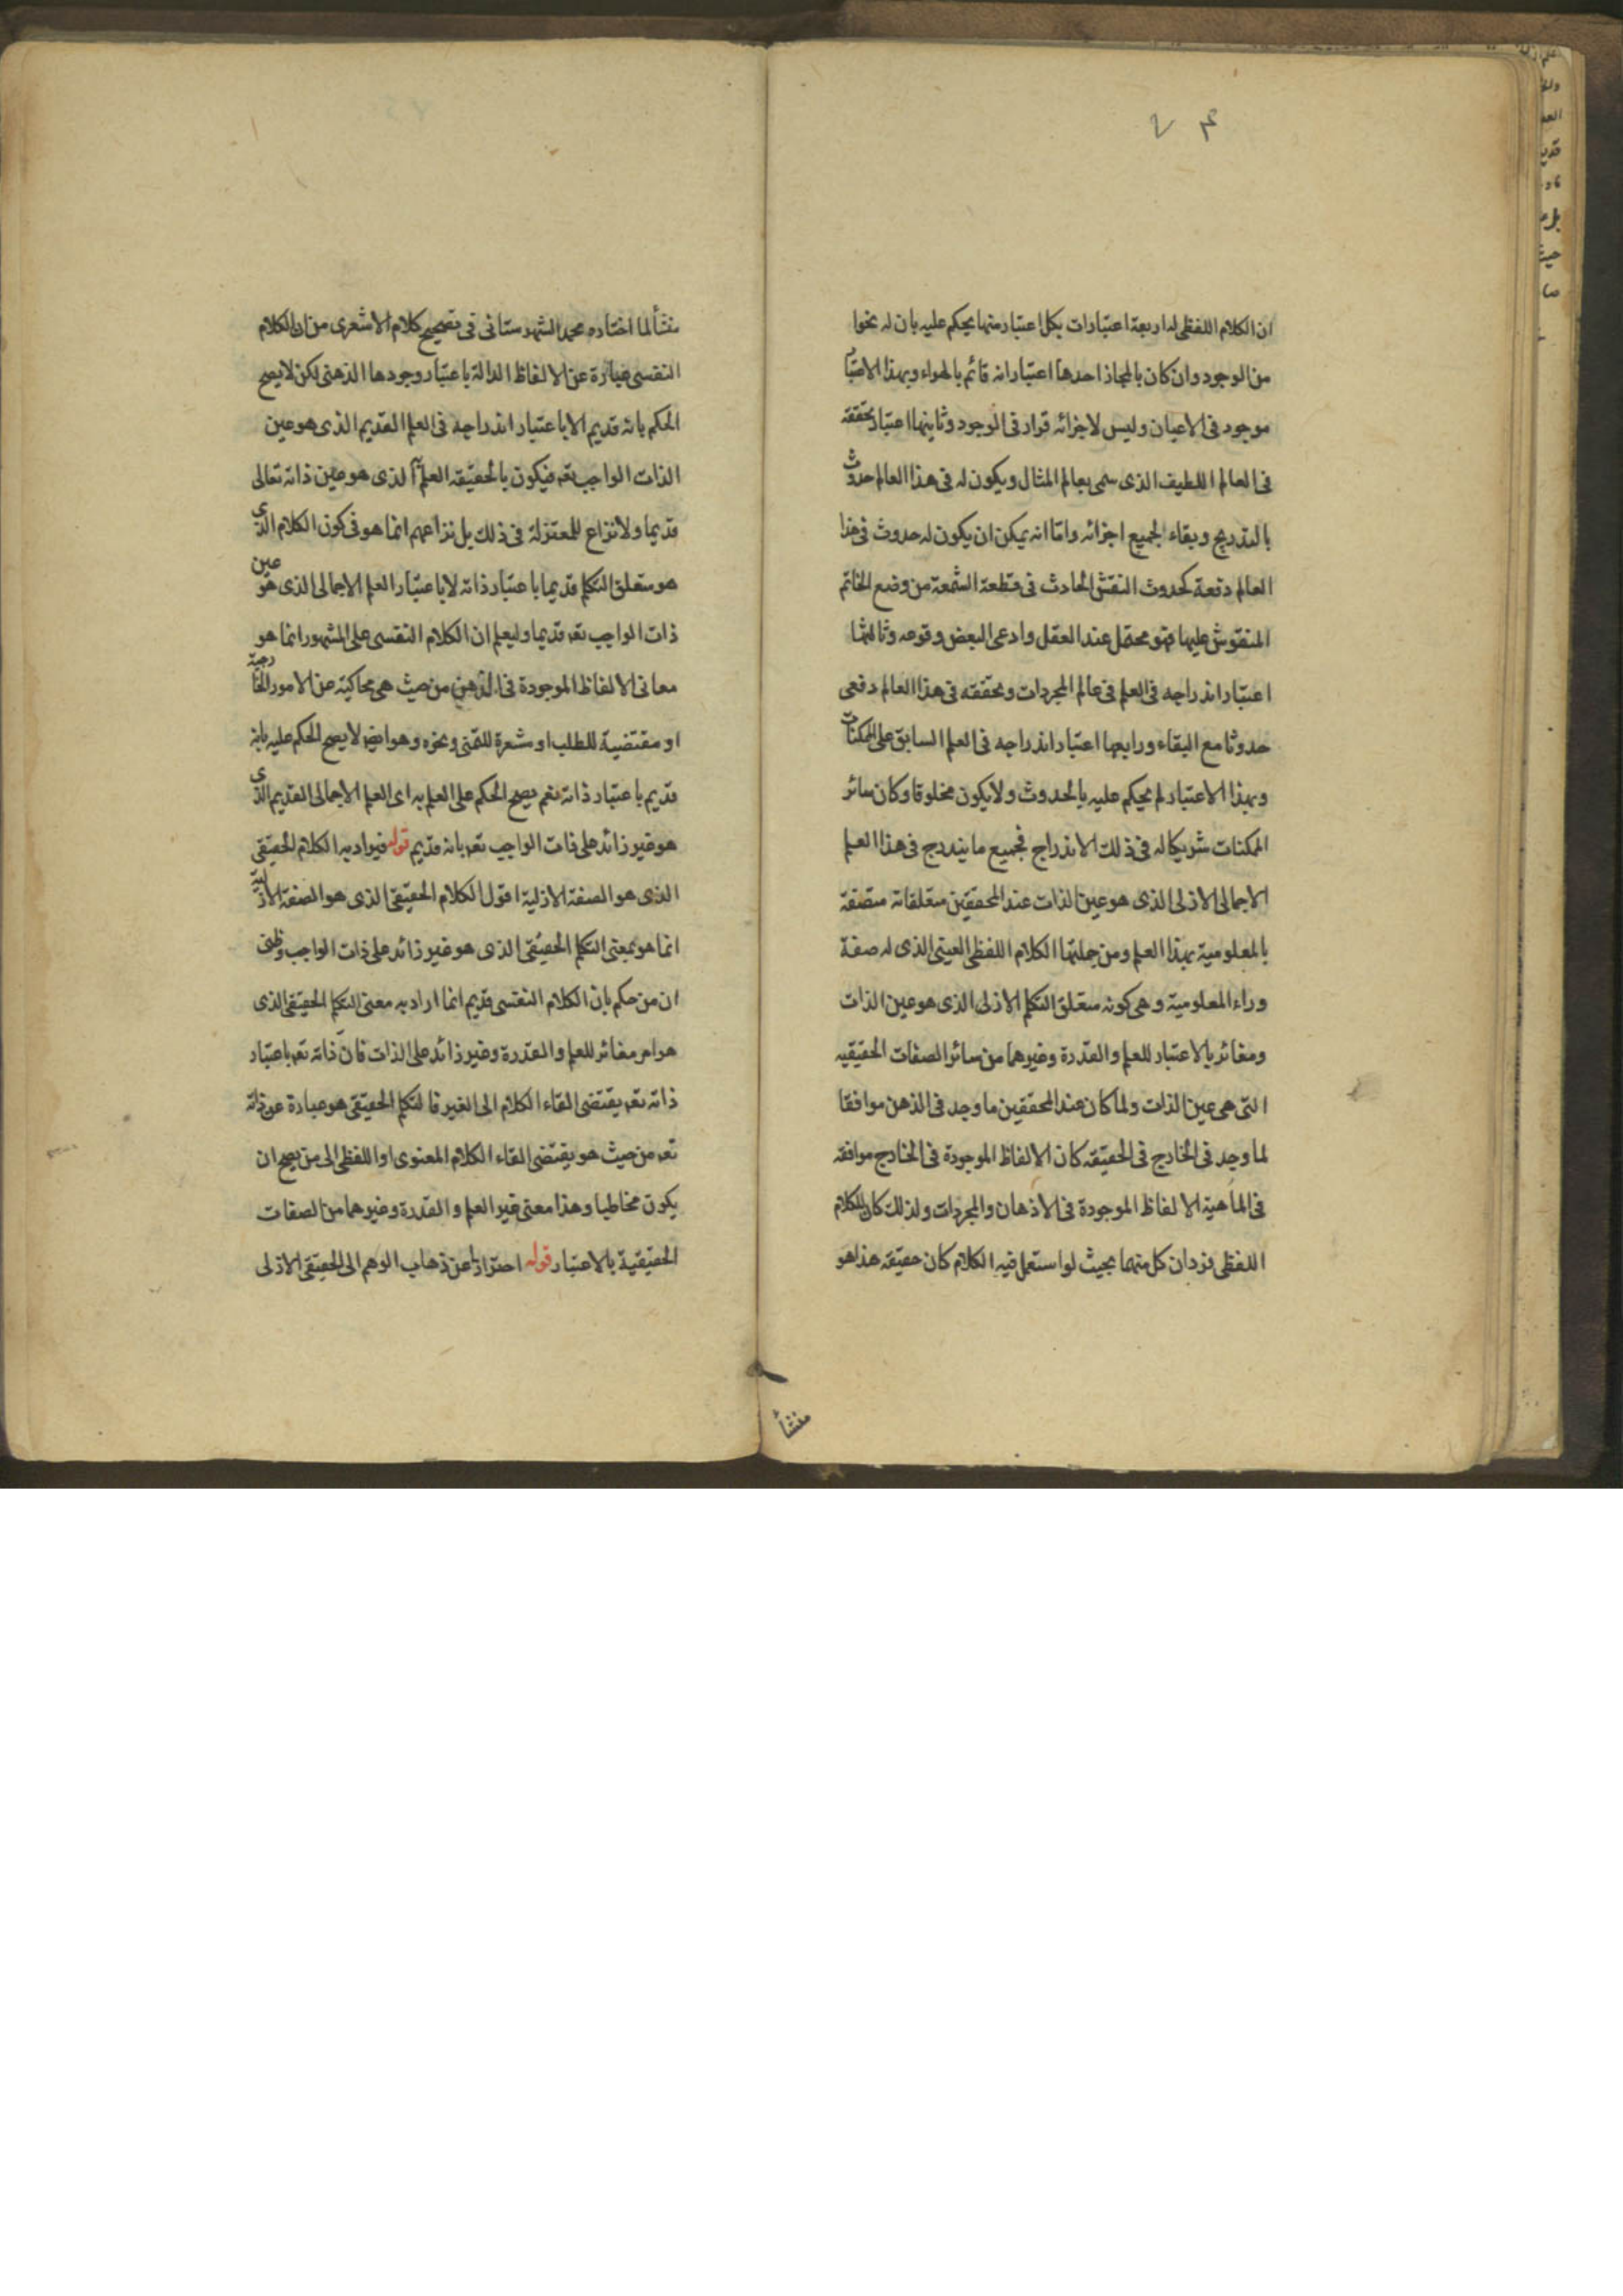 ان الكلام اللفظى له اربعة اعتبارات بكل اعتبار منها يحكم عليه بان له نحوا
من الوجود وان كان بالمجاز احدها اعتبار انه قائم بالهواء وبهذا الاعتبار
موجود فى الاعيان وليس لاجزائه قرار فى الوجود وثانيها اعتبار تحققه
فى العالم اللطيف الذى سمى بعالم المثال ويكون له فى هذا العالم حدوث
بالتدريج وبقاء لجميع اجزائه واما انه يمكن ان يكون له حدوث فى هذا
العالم دفعة كحدوث النقش الحادث فى قطعة الشمعة من وضع الخاتم
المنقوش عليها فهو محتمل عند العقل وادعى البعض وقوعه وثالثها
اعتبار اندراجه فى العلم فى عالم المجردات وتحققه فى هذا العالم دفعى
حدوثا مع البقاء ورابعها اعتبار اندراجه فى العلم السابق على الممكنات
وبهذا الاعتبار لم يحكم عليه بالحدوث ولا يكون مخلوقا وكان سائر
الممكنات شريكا له فى ذلك الاندراج فجميع ما يندرج فى هذا العلم
الاجمالى الازلى الذى هو عين الذات عند المحققين متعلقاته متصفة
بالمعلومية بهذا العلم ومن جملتها الكلام اللفظى العينى الذى له صفة
وراء المعلومية وهى كونه متعلق التكلم الازلى الذى هو عين الذات
ومغائر بالاعتبار للعلم والقدرة وغيرهما من سائر الصفات الحقيقيه
التى هى عين الذات ولما كان عند المحققين ما وجد فى الذهن موافقا
لما وجد فى الخارج فى الحقيقة كان الالفاظ الموجودة فى الخارج موافقة
فى الماهية الالفاظ الموجودة فى الاذهان والمجردات ولذلك كان للكلام
اللفظى فردان كل منهما بحيث لو استعمل فيه الكلام كان حقيقة هذا هو
منشأ
منشأ لما اختاره محمد الشهرستانى فى تصحيح كلام الاشعرى من ان الكلام
النفسى عبارة عن الالفاظ الدالة باعتبار وجودها الذهنى لكن لا يصح
الحكم بانه قديم الا باعتبار اندراجه فى العلم القديم الذى هو عين
الذات الواجب تعـ فيكون بالحقيقة العلم الذى هو عين ذاته تعالى
قديما ولا نزاع للمعتزلة فى ذلك بل نزاعهم انما هو فى كون الكلام الذى
هو متعلق التكلم قديما باعتبار ذاته لا باعتبار العلم الاجمالى الذى هو عين
ذات الواجب تعـ قديما وليعلم ان الكلام النفسى على المشهور انما هو
معانى الالفاظ الموجودة فى الذهن من حيث هى محاكية عن الامور الخارجية
او مقتضية للطلب او مشعرة للتمنى ونحوه وهو ايضا لا يصح الحكم عليه بانه
قديم باعتبار ذاته نعم يصح الحكم على العلم به اى العلم الاجمالى القديم الذى
هو غير زائد على ذات الواجب تعـ بانه قديم قوله فيراد به الكلام الحقيقى
الذى هو الصفة الازلية اقول الكلام الحقيقى الذى هو الصفة الازلية
انما هو بمعنى التكلم الحقيقى الذى هو غير زائد على ذات الواجب وظنى
ان من حكم بان الكلام النفسى قديم انما اراد به معنى التكلم الحقيقى الذى
هو امر مغائر للعلم والقدرة وغير زائد على الذات فان ذاته تعـ باعتبار
ذاته تعـ يقتضى القاء الكلام الى الغير فالتكلم الحقيقى هو عبارة عن ذاته
تعـ من حيث هو يقتضى القاء الكلام المعنوى او اللفظى الى من يصح ان
يكون مخاطبا وهذا معنى غير العلم والقدرة وغيرهما من الصفات
الحقيقية بالاعتبار قوله احترازا عن ذهاب الوهم الى الحقيقى الازلى